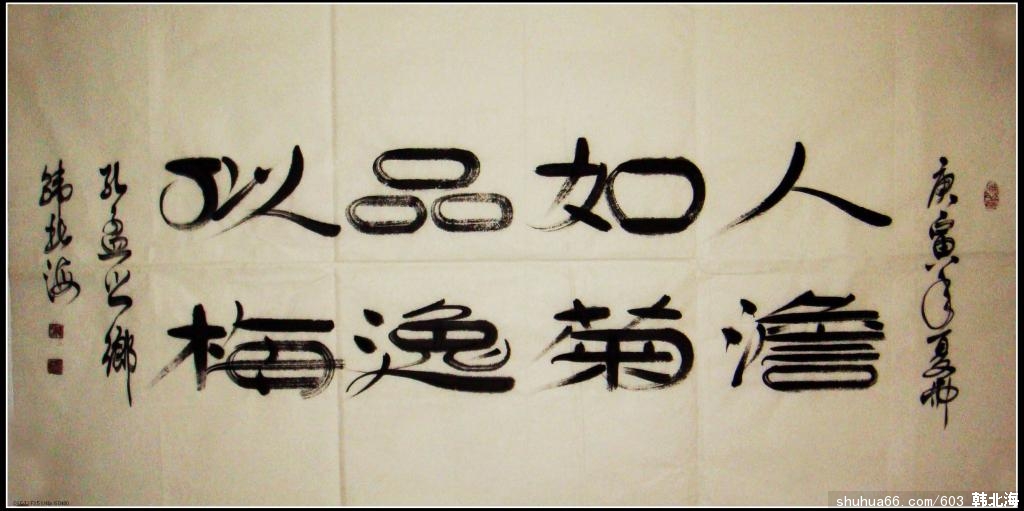 庚寅年夏於
人澹
如菊
品逸
似梅
孔孟之鄉
韩北海
shuhua66.com/603 韩北海